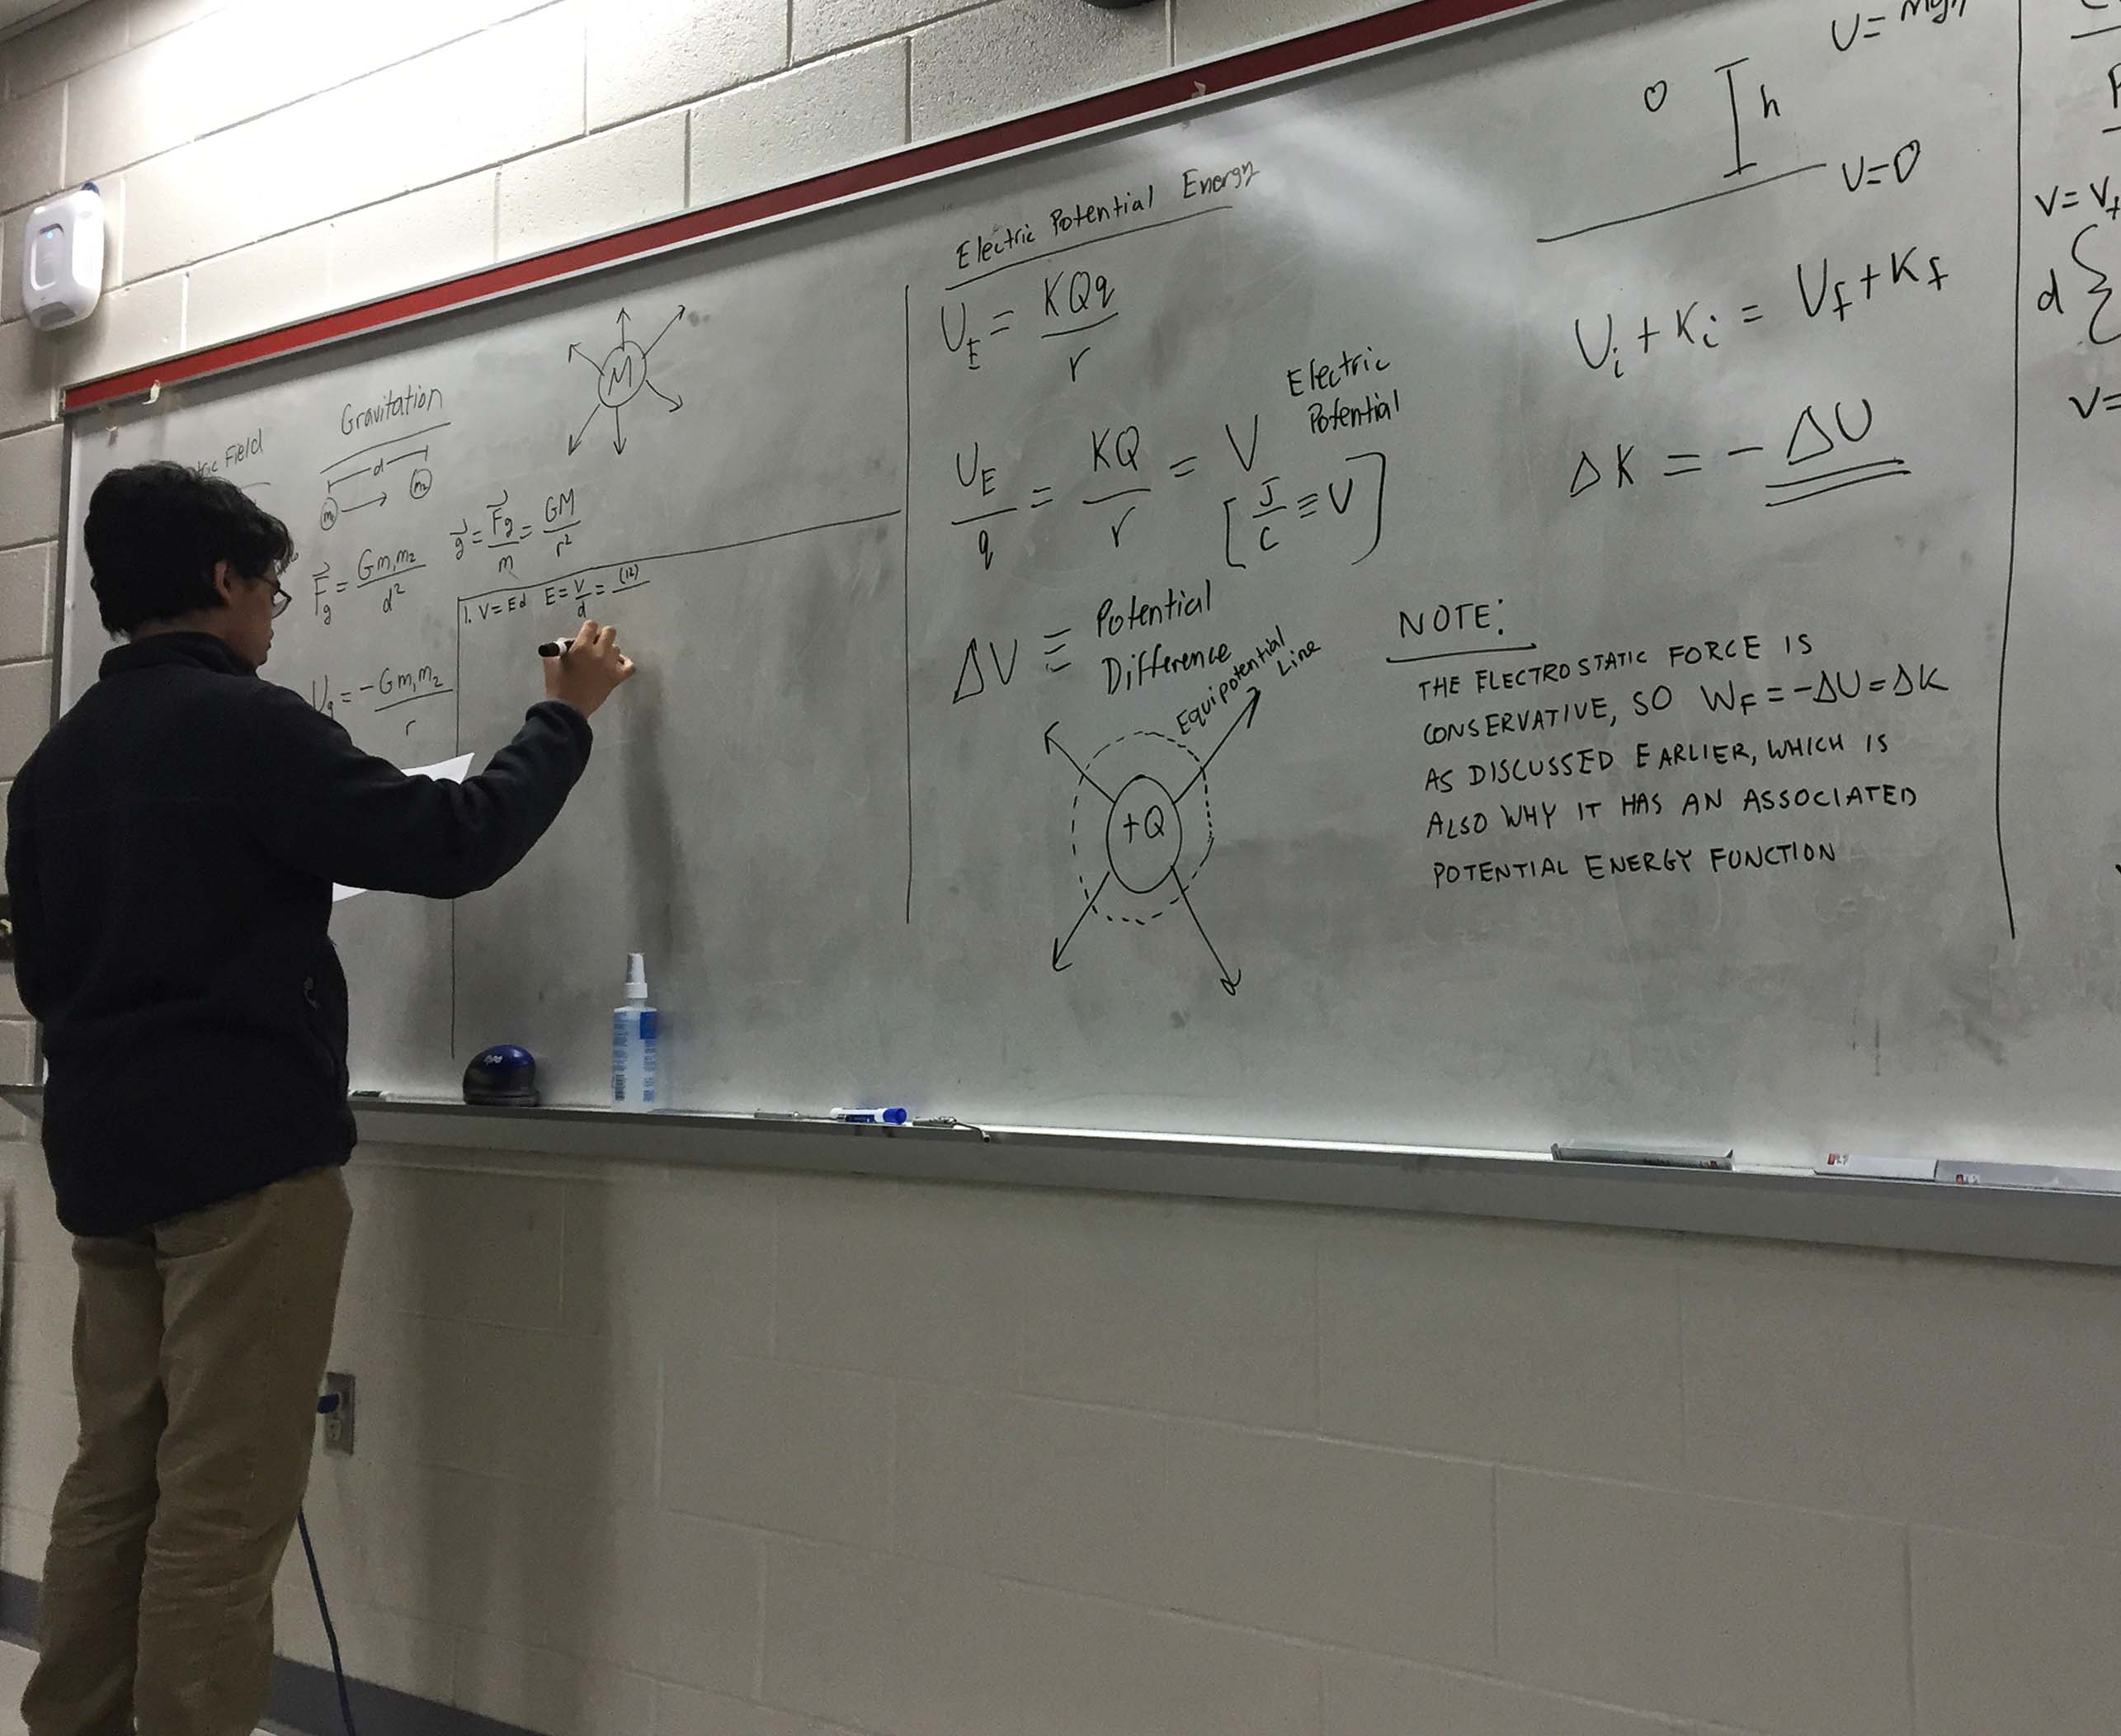 Field
Gravitation
d
m₁
m₂
M
F⃗g = Gm₁m₂/d²
g⃗ = F⃗g/m = GM/r²
Ug = -Gm₁m₂/r
1. V=Ed E=V/d = (12)
Electric Potential Energy
U_E = KQq/r
U_E/q = KQ/r = V
Electric
Potential
[J/C ≡ V]
ΔV ≡ Potential
Difference
Equipotential
Line
+Q
U=mgh
h
U=0
Ui + Ki = Uf + Kf
ΔK = -ΔU
NOTE:
THE ELECTROSTATIC FORCE IS
CONSERVATIVE, SO W_F = -ΔU = ΔK
AS DISCUSSED EARLIER, WHICH IS
ALSO WHY IT HAS AN ASSOCIATED
POTENTIAL ENERGY FUNCTION
V=V+
d {
V=
expo